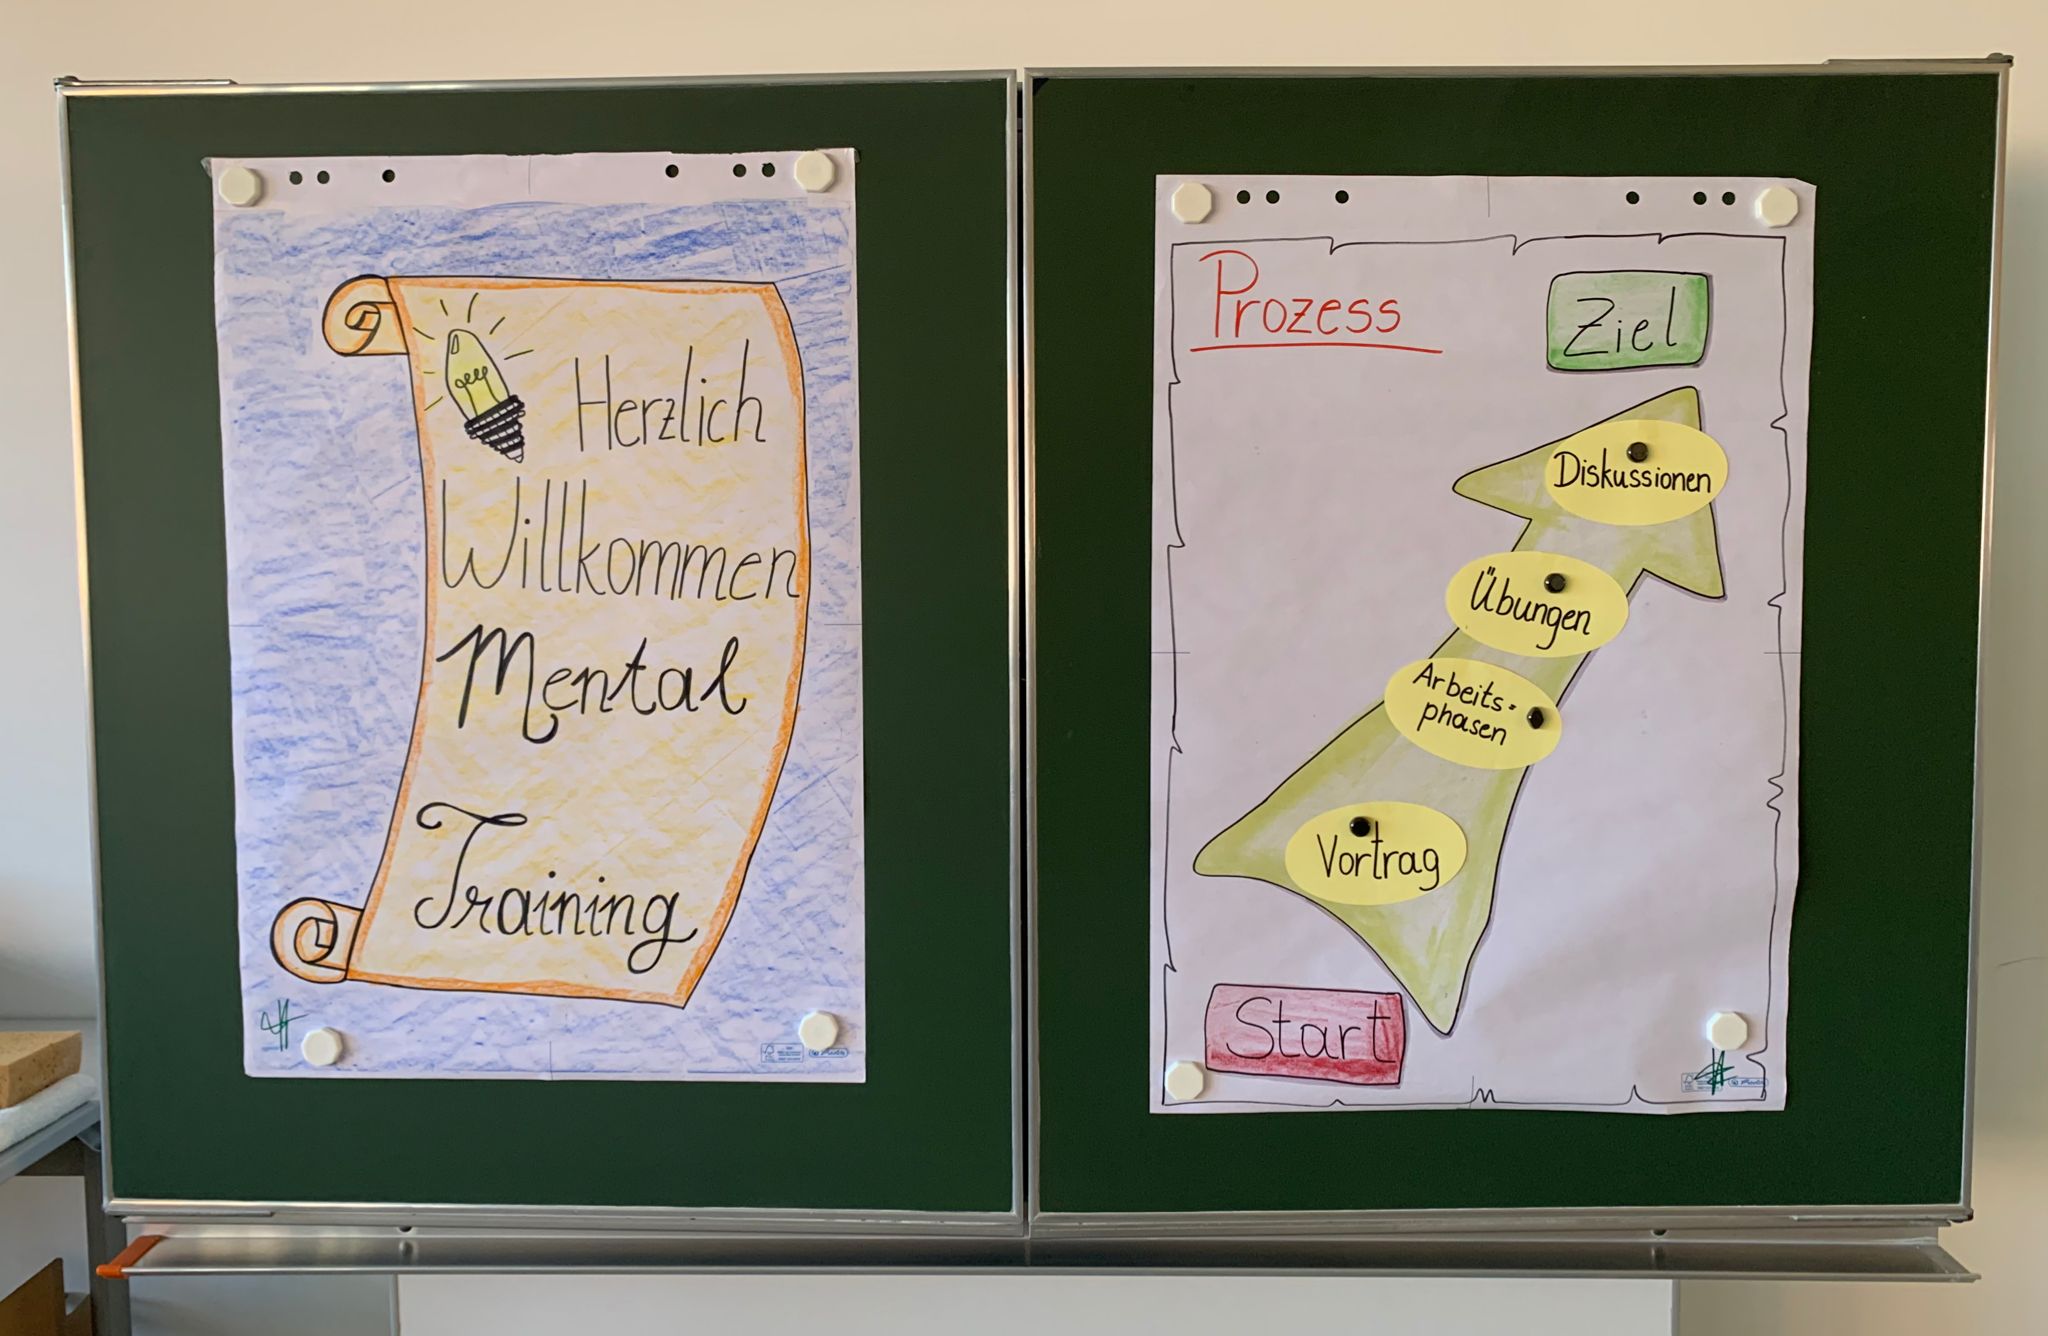 Herzlich
Willkommen
Mental
Training
Prozess
Ziel
Diskussionen
Übungen
Arbeits=
phasen
Vortrag
Start